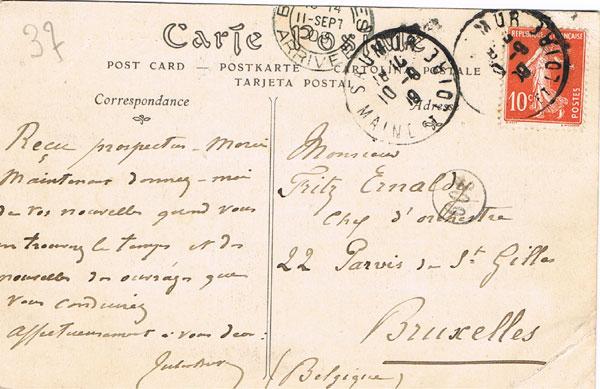 37
Carte Postale
POST CARD — POSTKARTE CARTOLINA POSTAL
TARJETA POSTAL
Correspondance
Adresse
11-SEPT
ARRIVÉE
MAINE & LOIRE
RÉPUBLIQUE FRANÇAISE
10c
POSTES
Reçu prospectus - Merci
Maintenant donnez-moi
de vos nouvelles quand vous
en trouverez le temps et des
nouvelles des ouvrages que
vous conduirez
Affectueusement à vous deux
Monsieur
Fritz Ernaldy
Chef d'orchestre
22 Parvis de St Gilles
Bruxelles
(Belgique)